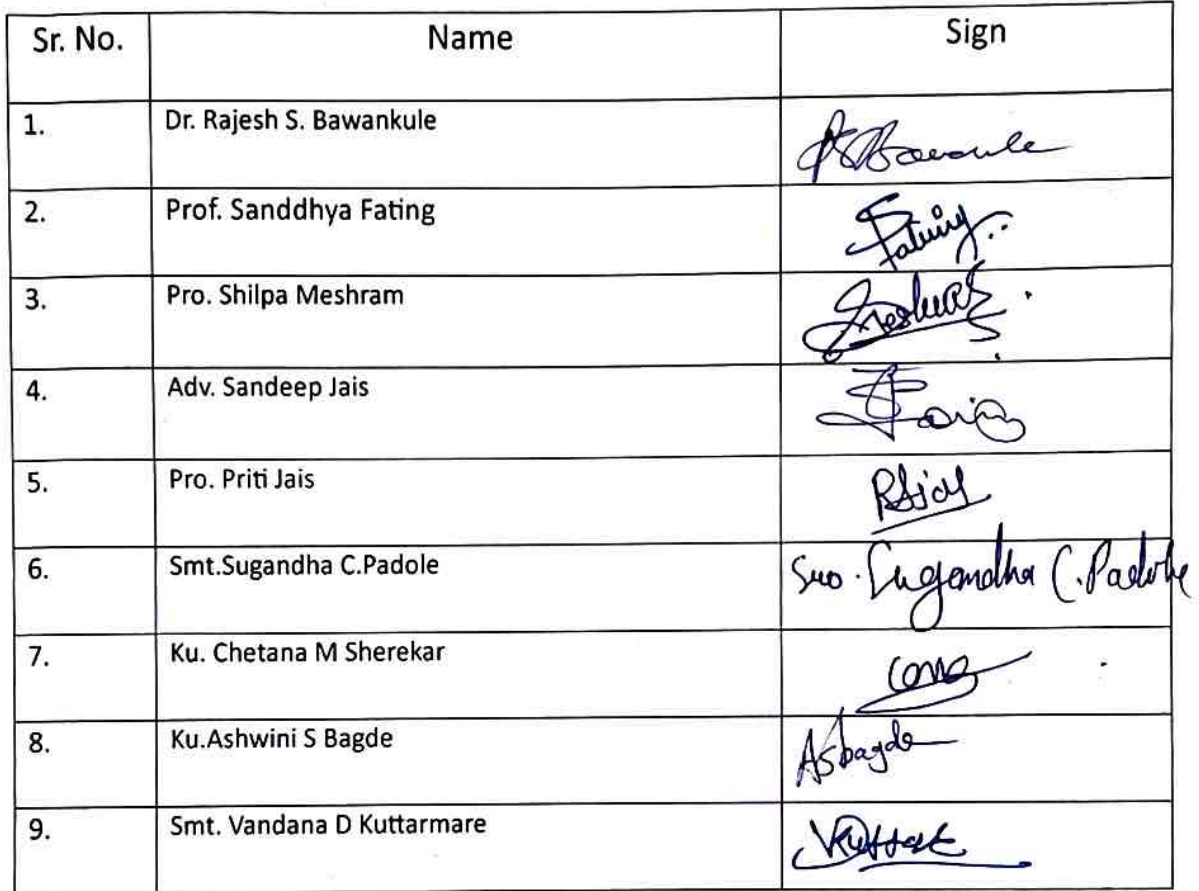 Sr. No. Name Sign
1. Dr. Rajesh S. Bawankule
2. Prof. Sanddhya Fating Fating
3. Pro. Shilpa Meshram
4. Adv. Sandeep Jais
5. Pro. Priti Jais
6. Smt.Sugandha C.Padole Sugandha C. Padole
7. Ku. Chetana M Sherekar
8. Ku.Ashwini S Bagde Asbagde
9. Smt. Vandana D Kuttarmare